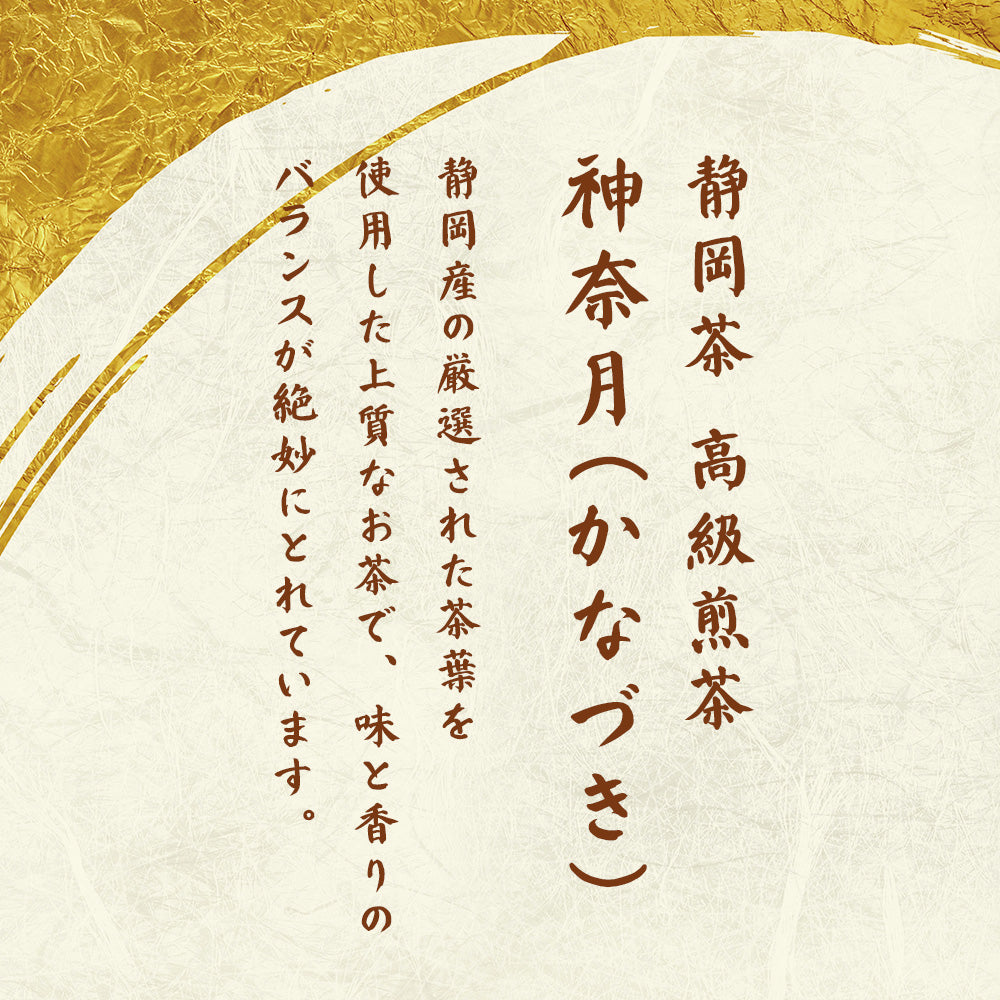 静岡茶 高級煎茶
神奈月(かなづき)
静岡産の厳選された茶葉を
使用した上質なお茶で、味と香りの
バランスが絶妙にとれています。